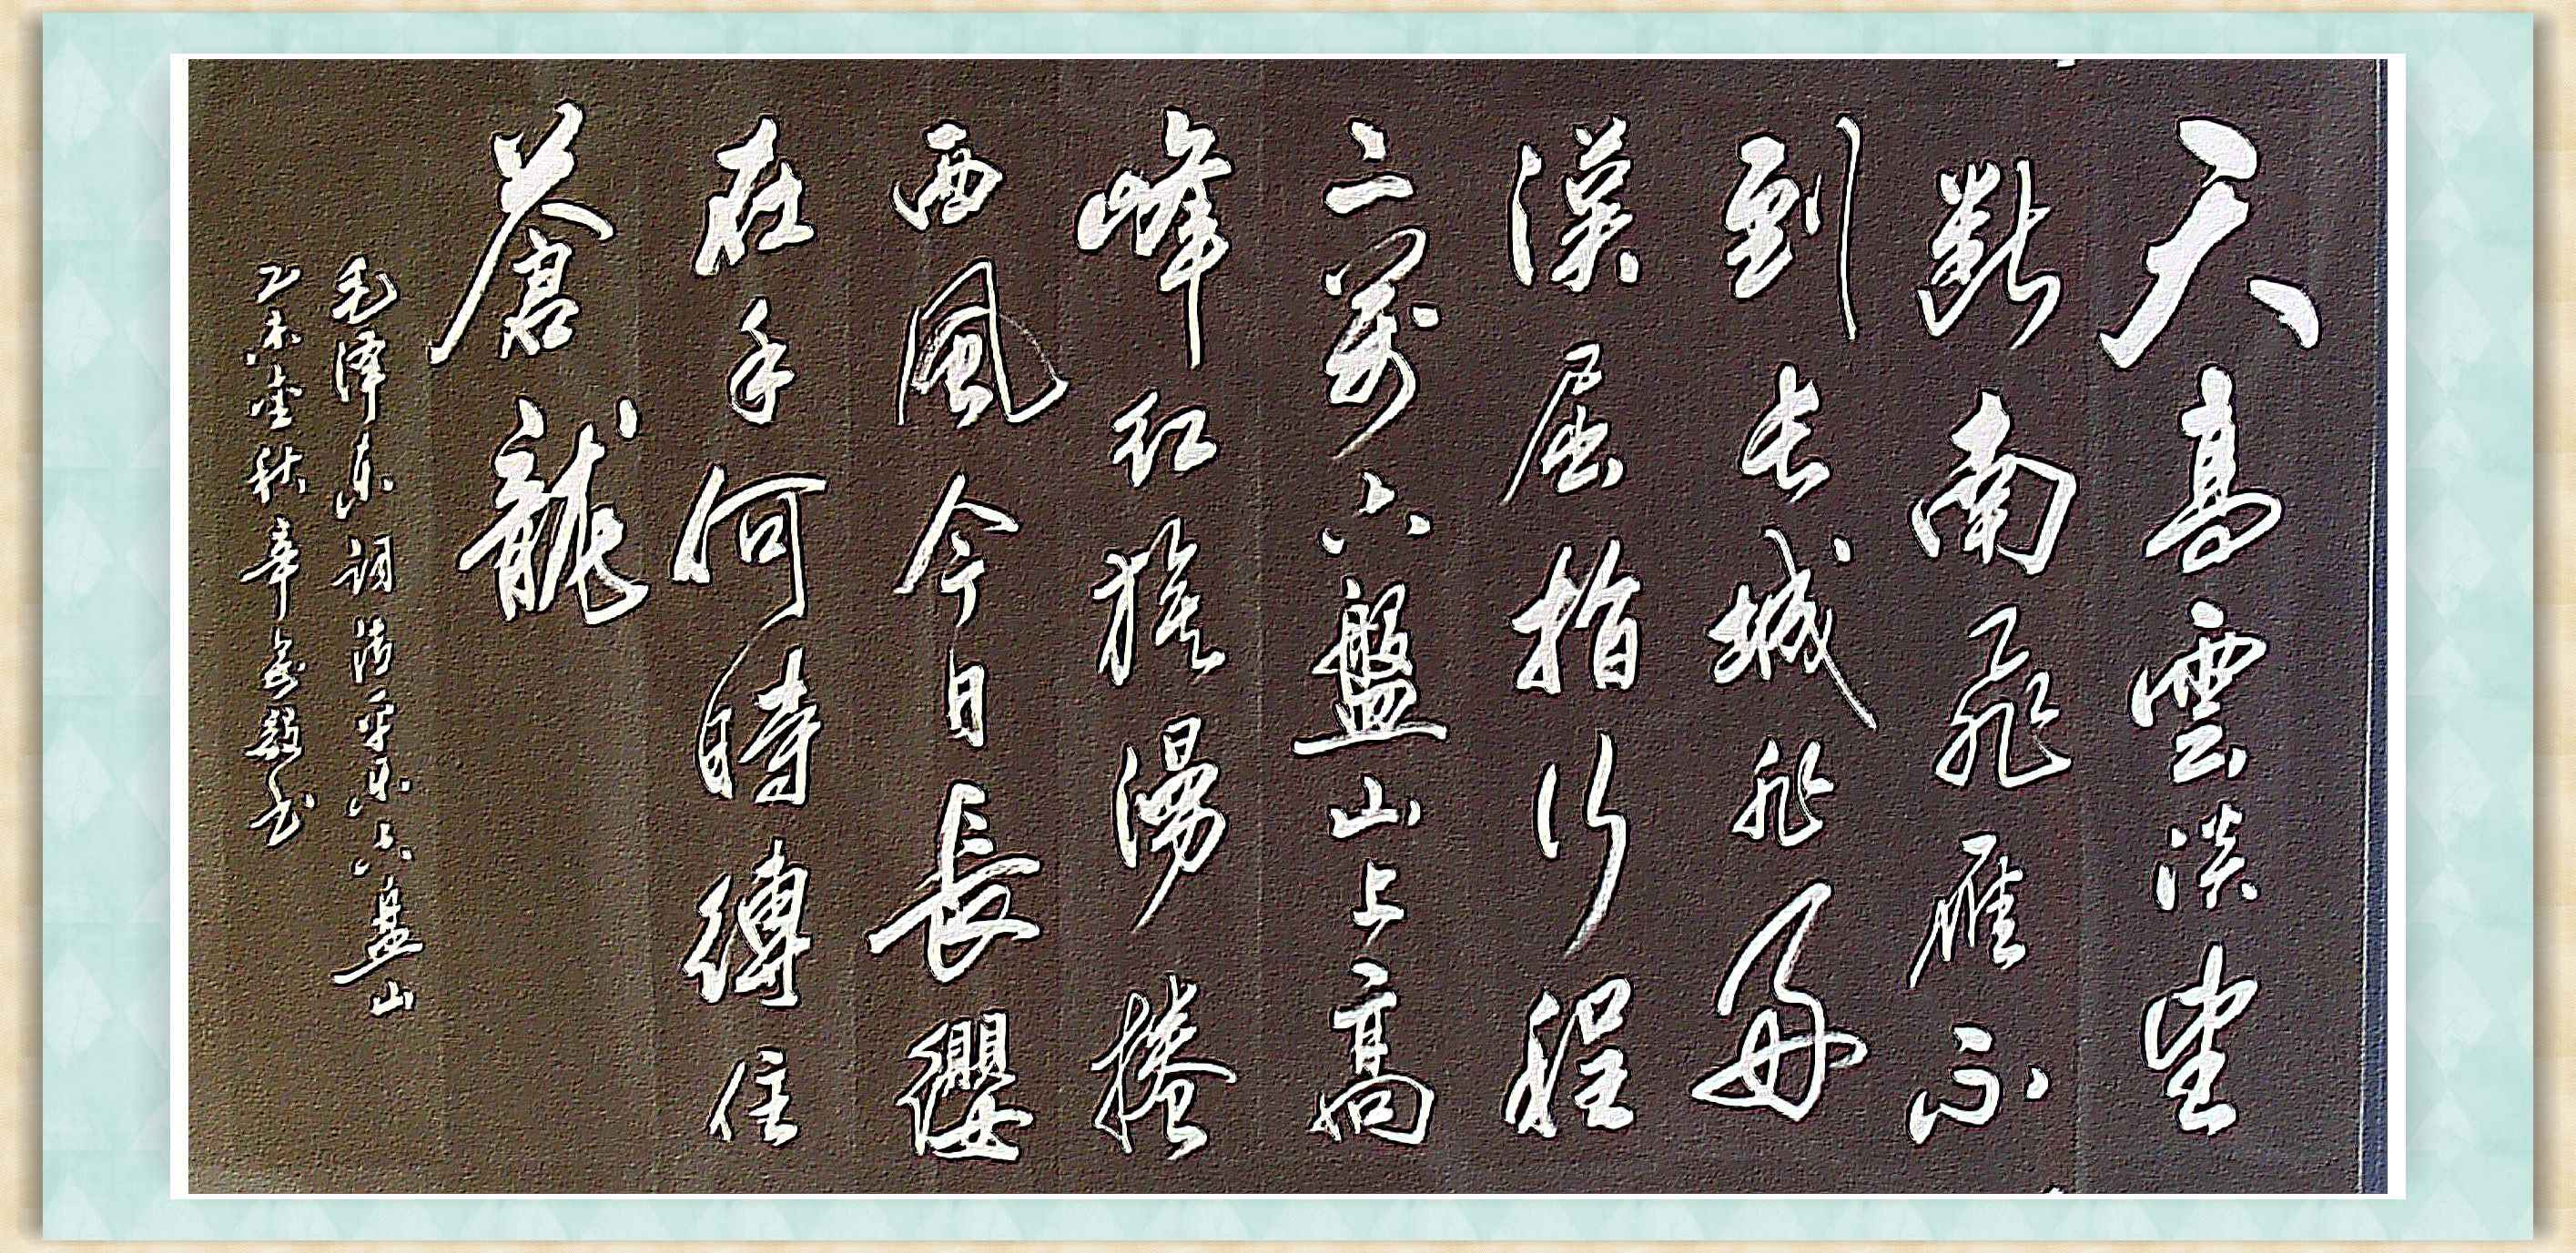 天高雲淡望
斷南飛雁不
到长城非好
漢屈指行程
二萬六盤山上高
峰红旗漫捲
西風今日長纓
在手何時縛住
蒼龍
毛泽东词清平乐六盘山
乙未金秋章毅书